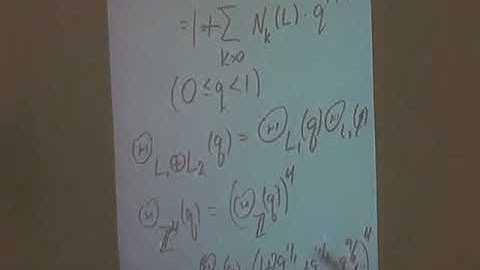 = 1 + ∑ N_k(L) · q
k>0
(0 ≤ q < 1)
Θ_{L₁⊕L₂}(q) = Θ_{L₁}(q) Θ_{L₂}(q)
Θ_{ℤ⁴}(q) = (Θ_ℤ(q))⁴